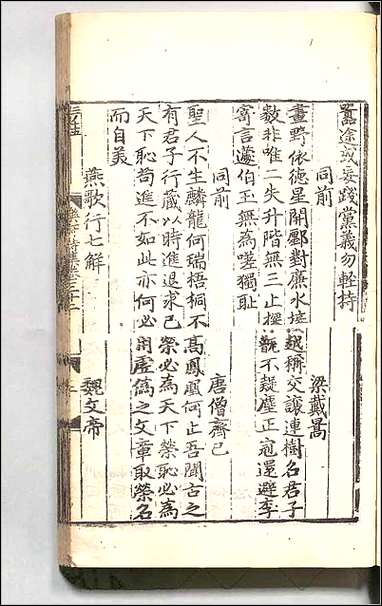 囂途或妄踐黨義勿輕持
同前 梁戴暠
畫野依德星開鄽對廉水接越稱交讓連樹名君子
數非唯二失升階無三止探甑不疑塵正冠還避李
寄言蘧伯玉無為嗟獨恥
同前 唐僧齊己
聖人不生麟龍何瑞梧桐不高鳳凰何止吾聞古之
有君子行藏以時進退求己榮必為天下榮恥必為
天下恥苟進不如此亦何必用虛偽之文章取榮名
而自美
燕歌行七解 魏文帝
樂府詩集卷三十二